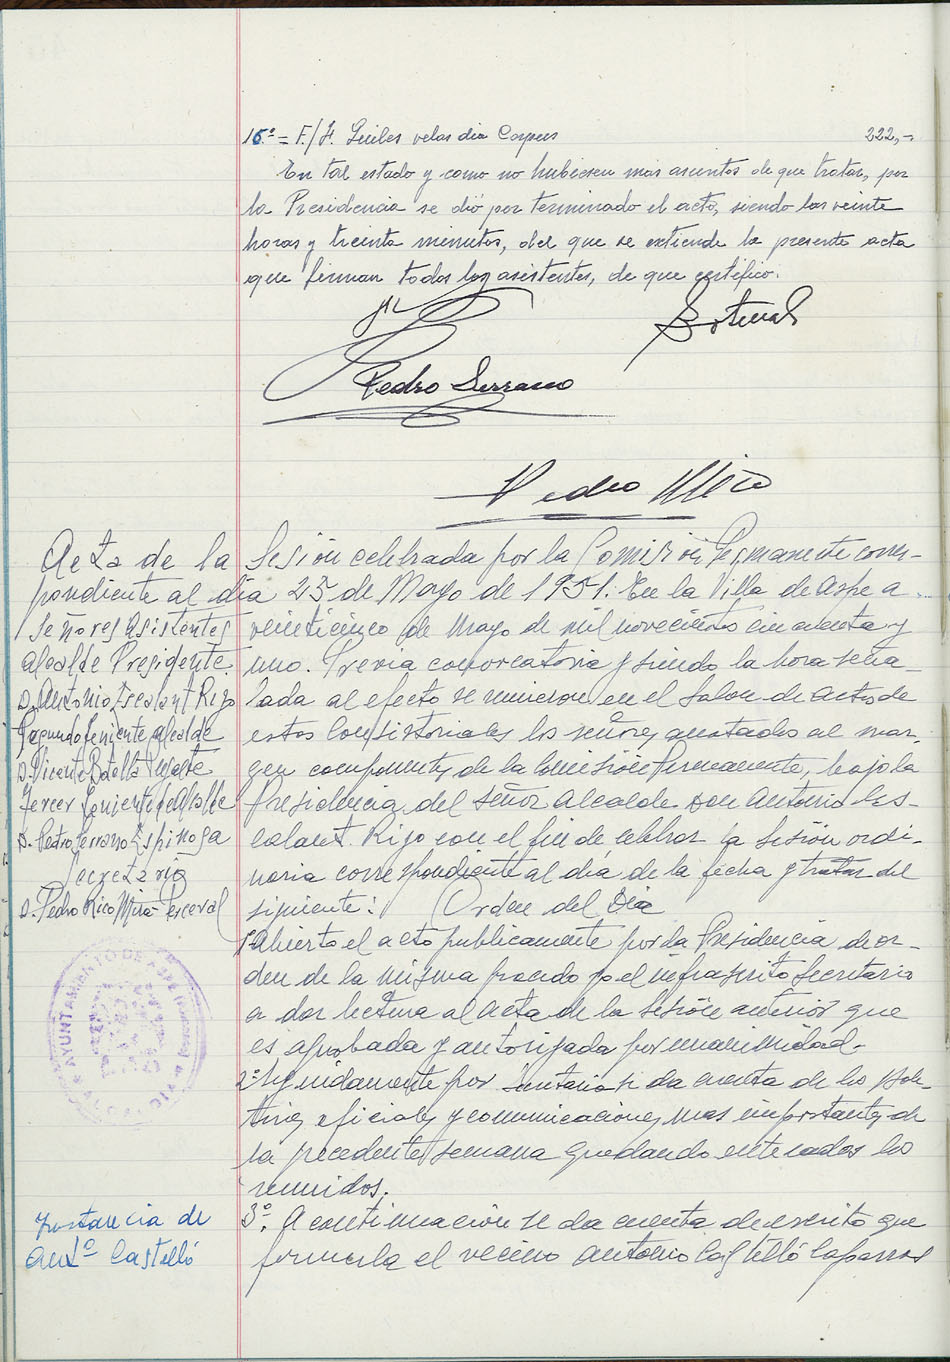 16º = F./ H. Guiles velas dia Corpus 222,-
En tal estado y como no hubiesen mas asuntos de que tratar, por
la Presidencia se dió por terminado el acto, siendo las veinte
horas y treinta minutos, del que se extiende la presente acta
que firman todos los asistentes, de que certifico.
Pedro Serrano
Pedro Miro
Acta de la Sesión celebrada por la Comisión Permanente corres-
pondiente al día 25 de Mayo de 1951. En la Villa de Aspe a
Señores Asistentes
Alcalde Presidente
D. Antonio Escalant Rizo
Segundo Teniente Alcalde
D. Vicente Botella
Tercer Teniente Alcalde
D. Pedro Serrano Espinoza
Secretario
D. Pedro Rico Miró Perceval
veinticinco de Mayo de mil novecientos cincuenta y
uno. Previa convocatoria y siendo la hora seña-
lada al efecto se reunieron en el Salon de actos de
estas Consistoriales los señores anotados al mar-
gen componentes de la Comisión Permanente, bajo la
Presidencia del Señor Alcalde Don Antonio Es-
calant Rizo con el fin de celebrar la Sesión ordi-
naria correspondiente al día de la fecha y tratar del
siguiente: Orden del Dia
1º Abierto el acto publicamente por la Presidencia de or-
den de la misma procedo yo el infrascrito Secretario
a dar lectura al acta de la sesión anterior que
es aprobada y autorizada por unanimidad.
AYUNTAMIENTO DE ASPE
ALCALDIA
2º Seguidamente por Secretaria se da cuenta de los Bole-
tines oficiales y comunicaciones mas importantes de
la precedente semana quedando enterados los
reunidos.
Instancia de
Antº Castelló
3º. A continuación se da cuenta de escrito que
formula el vecino Antonio Castelló Caparros